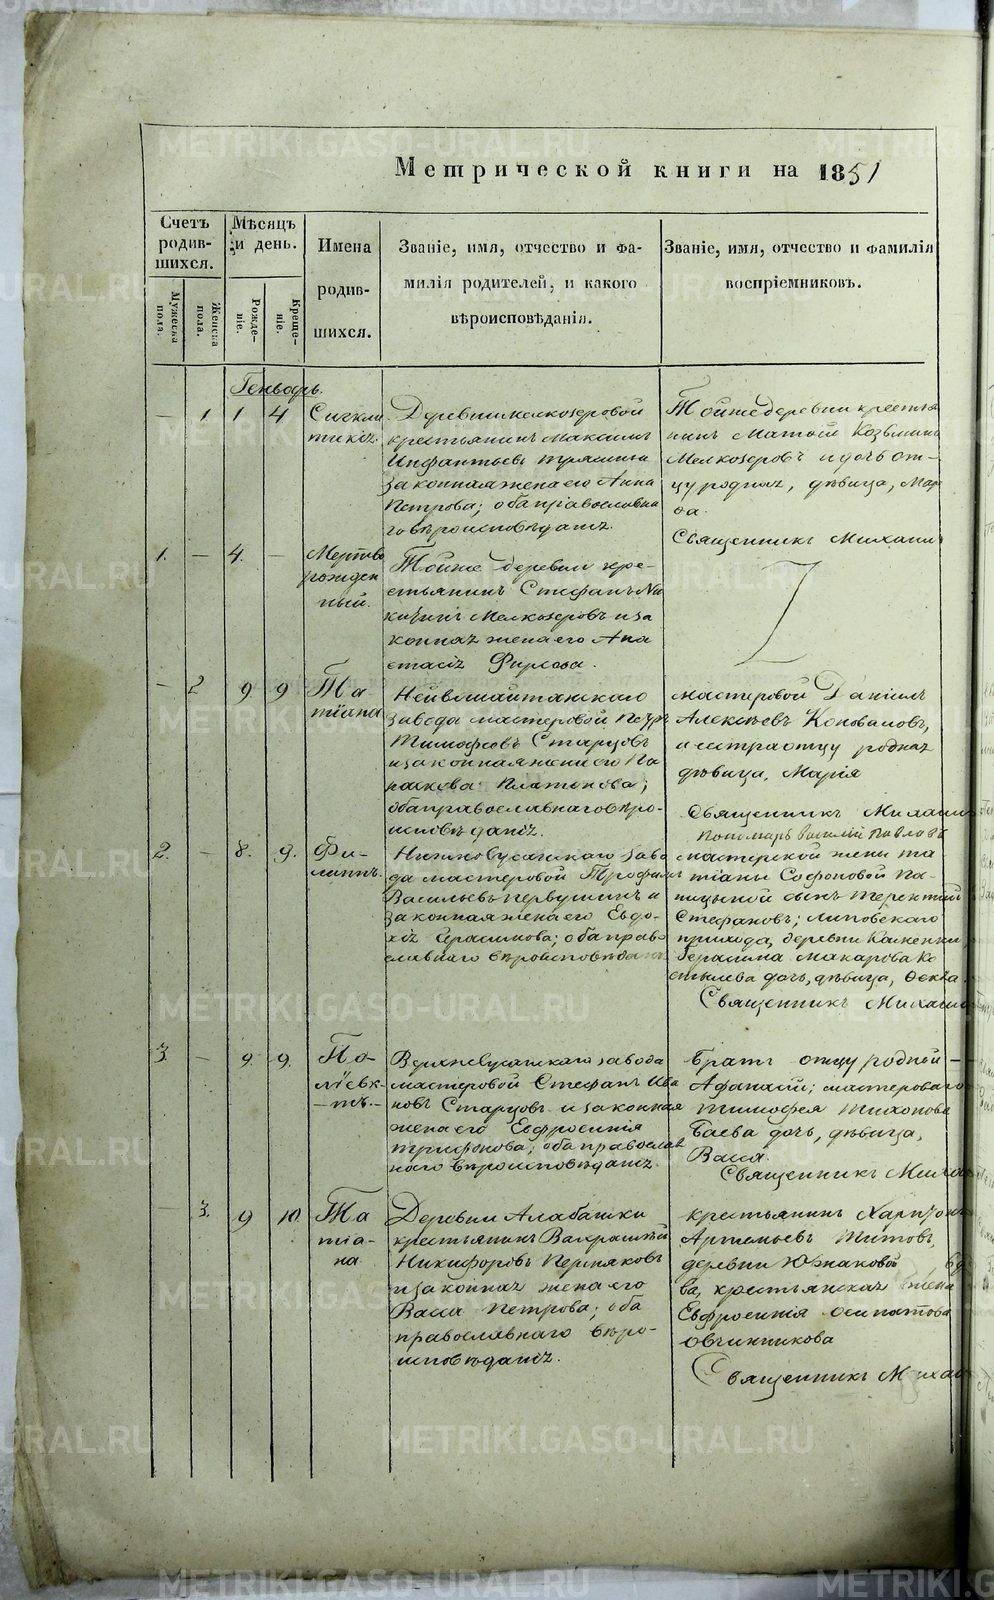 Метрической книги на 1851
Счетъ родив-шихся.
Мѣсяцъ и день.
Имена родив-шихся.
Званіе, имя, отчество и фа-
милія родителей, и какого
вѣроисповѣданія.
Званіе, имя, отчество и фамилія
воспріемниковъ.
Мужеска пола.
Женска пола.
Рожде-ніе.
Креще-ніе.
Генварь.
— 1 1 4
Деревни Мелкозеровой
крестьянинъ Максимъ
законная жена его Анна
Петрова; оба православна
го вѣроисповѣданія.
Той же деревни крестья
нинъ Козьминъ
Мелкозеровъ и дочь от-
цу родная, дѣвица, Мар
ѳа.
Священникъ Михаилъ
1. — 4. —
Мертво
рожден
ный.
Той же деревни кре-
стьянинъ Стефанъ
Мелкозеровъ и за
конная жена его Ана
стасія Фирсова.
— 2 9 9
Та
тіана
Нейвошайтанскаго
завода мастеровой Петръ
Тимофеевъ Старцовъ
и законная жена его Па
раскева Платонова;
оба православнаго вѣро-
исповѣданія.
мастеровой Даніилъ
Алексѣевъ Коноваловъ,
и сестра отцу родная
дѣвица, Марія
Священникъ Михаилъ
Пономарь Василій Павловъ
2. — 8. 9.
Фи-
липпъ.
завo
да мастеровой Трофимъ
Васильевъ Первушинъ и
законная жена его Евдо-
кія Герасимова; оба право
славнаго вѣроисповѣданія.
мастерской жены Та-
тіаны Софоновой
сынъ Терентій
Стефановъ; Липовскаго
прихода, деревни
Герасима Макарова Ко
стылева дочь, дѣвица, Ѳекла.
Священникъ Михаилъ
3. — 9 9.
По-
ліевк-
—тъ.—
завода
мастеровой Стефанъ Ива
новъ Старцовъ и законная
жена его Евфросинія
Трифонова; оба православ
наго вѣроисповѣданія.
Братъ отцу родней—
Афанасій; мастероваго
Тимофея Тихонова
Баева дочь, дѣвица,
Васса.
Священникъ Михаи
— 3. 9 10
Та
тіа-
на
Деревни Алабашки
крестьянинъ
Никифоровъ Пермяковъ
и законная жена его
Васса Петрова; оба
православнаго вѣро-
исповѣданія.
крестьянинъ Харитонъ
Артемьевъ Титовъ,
деревни Южаковой
ва, крестьянская жена
Евфросинія Осипатова
Овчинникова
Священникъ Михаи
METRIKI.GASO-URAL.RU